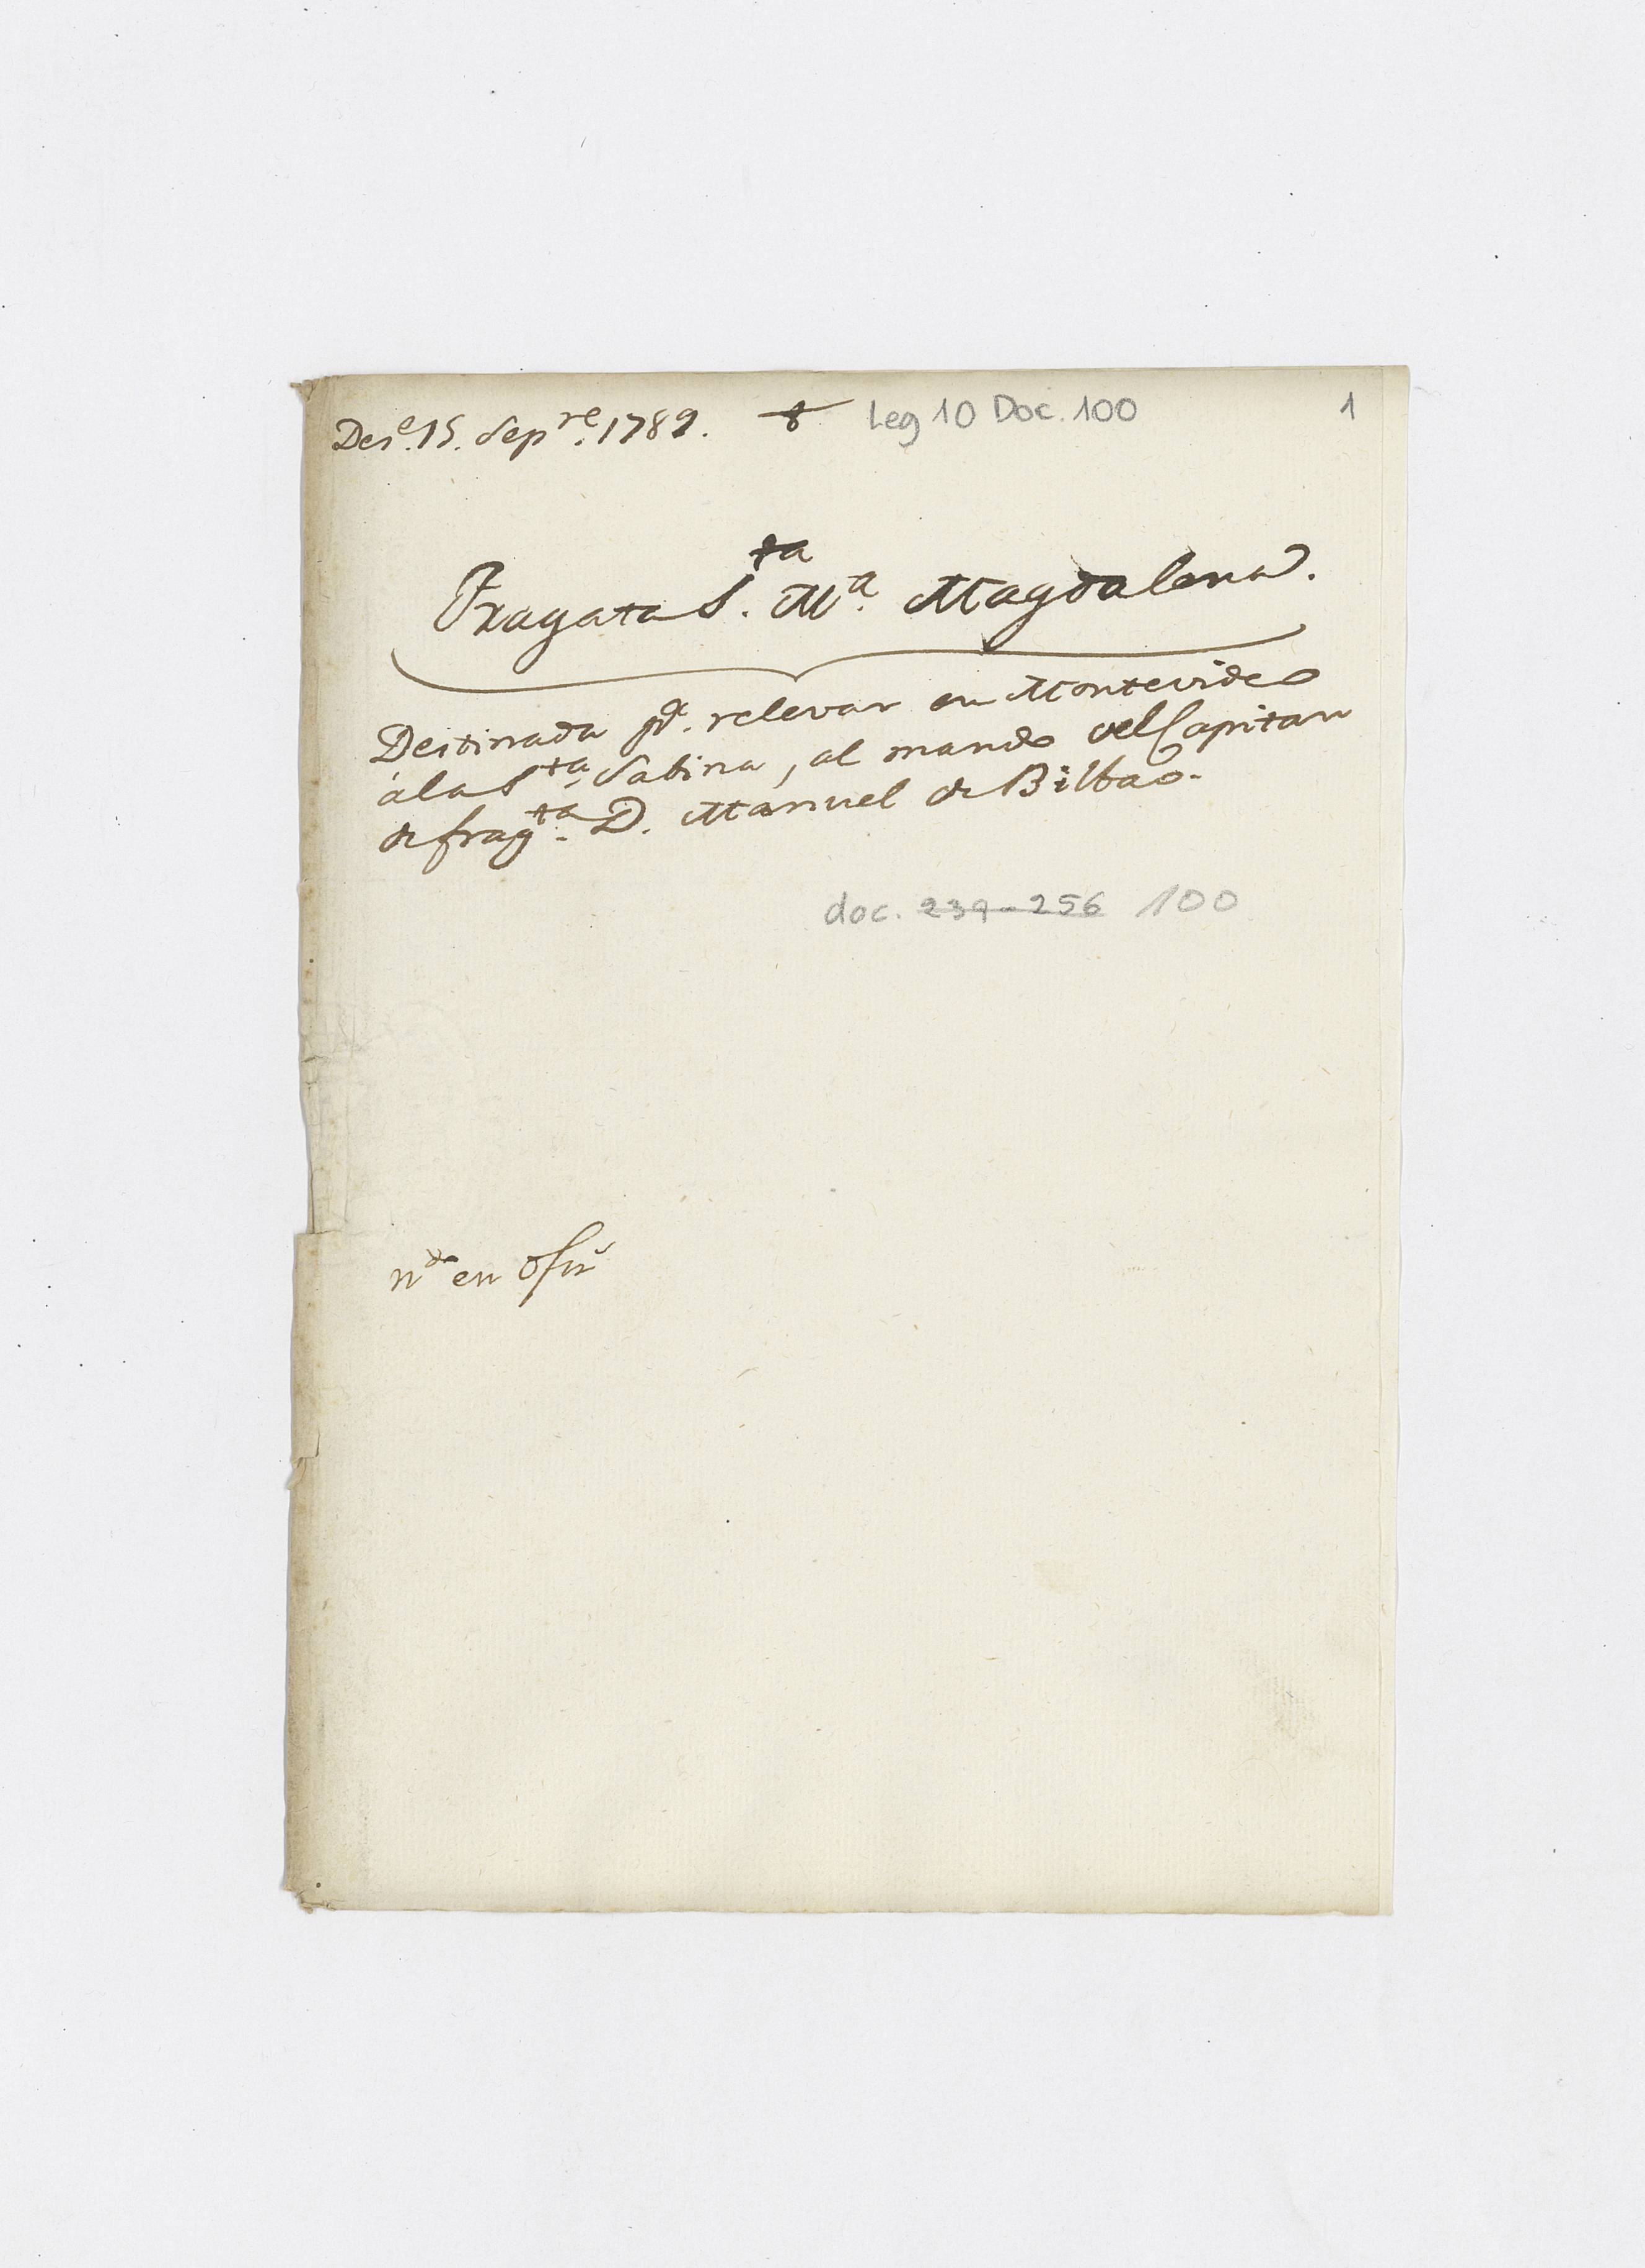 Des.e 15. Sepre. 1789. 8 Leg 10 Doc. 100 1
Fragata S.ta Ma. Magdalena.
Destinada pa. relevar en Montevideo
á la Sta. Sabina, al mando del Capitan
de fragta. D. Manuel de Bilbao.
doc. 239-256 100
en